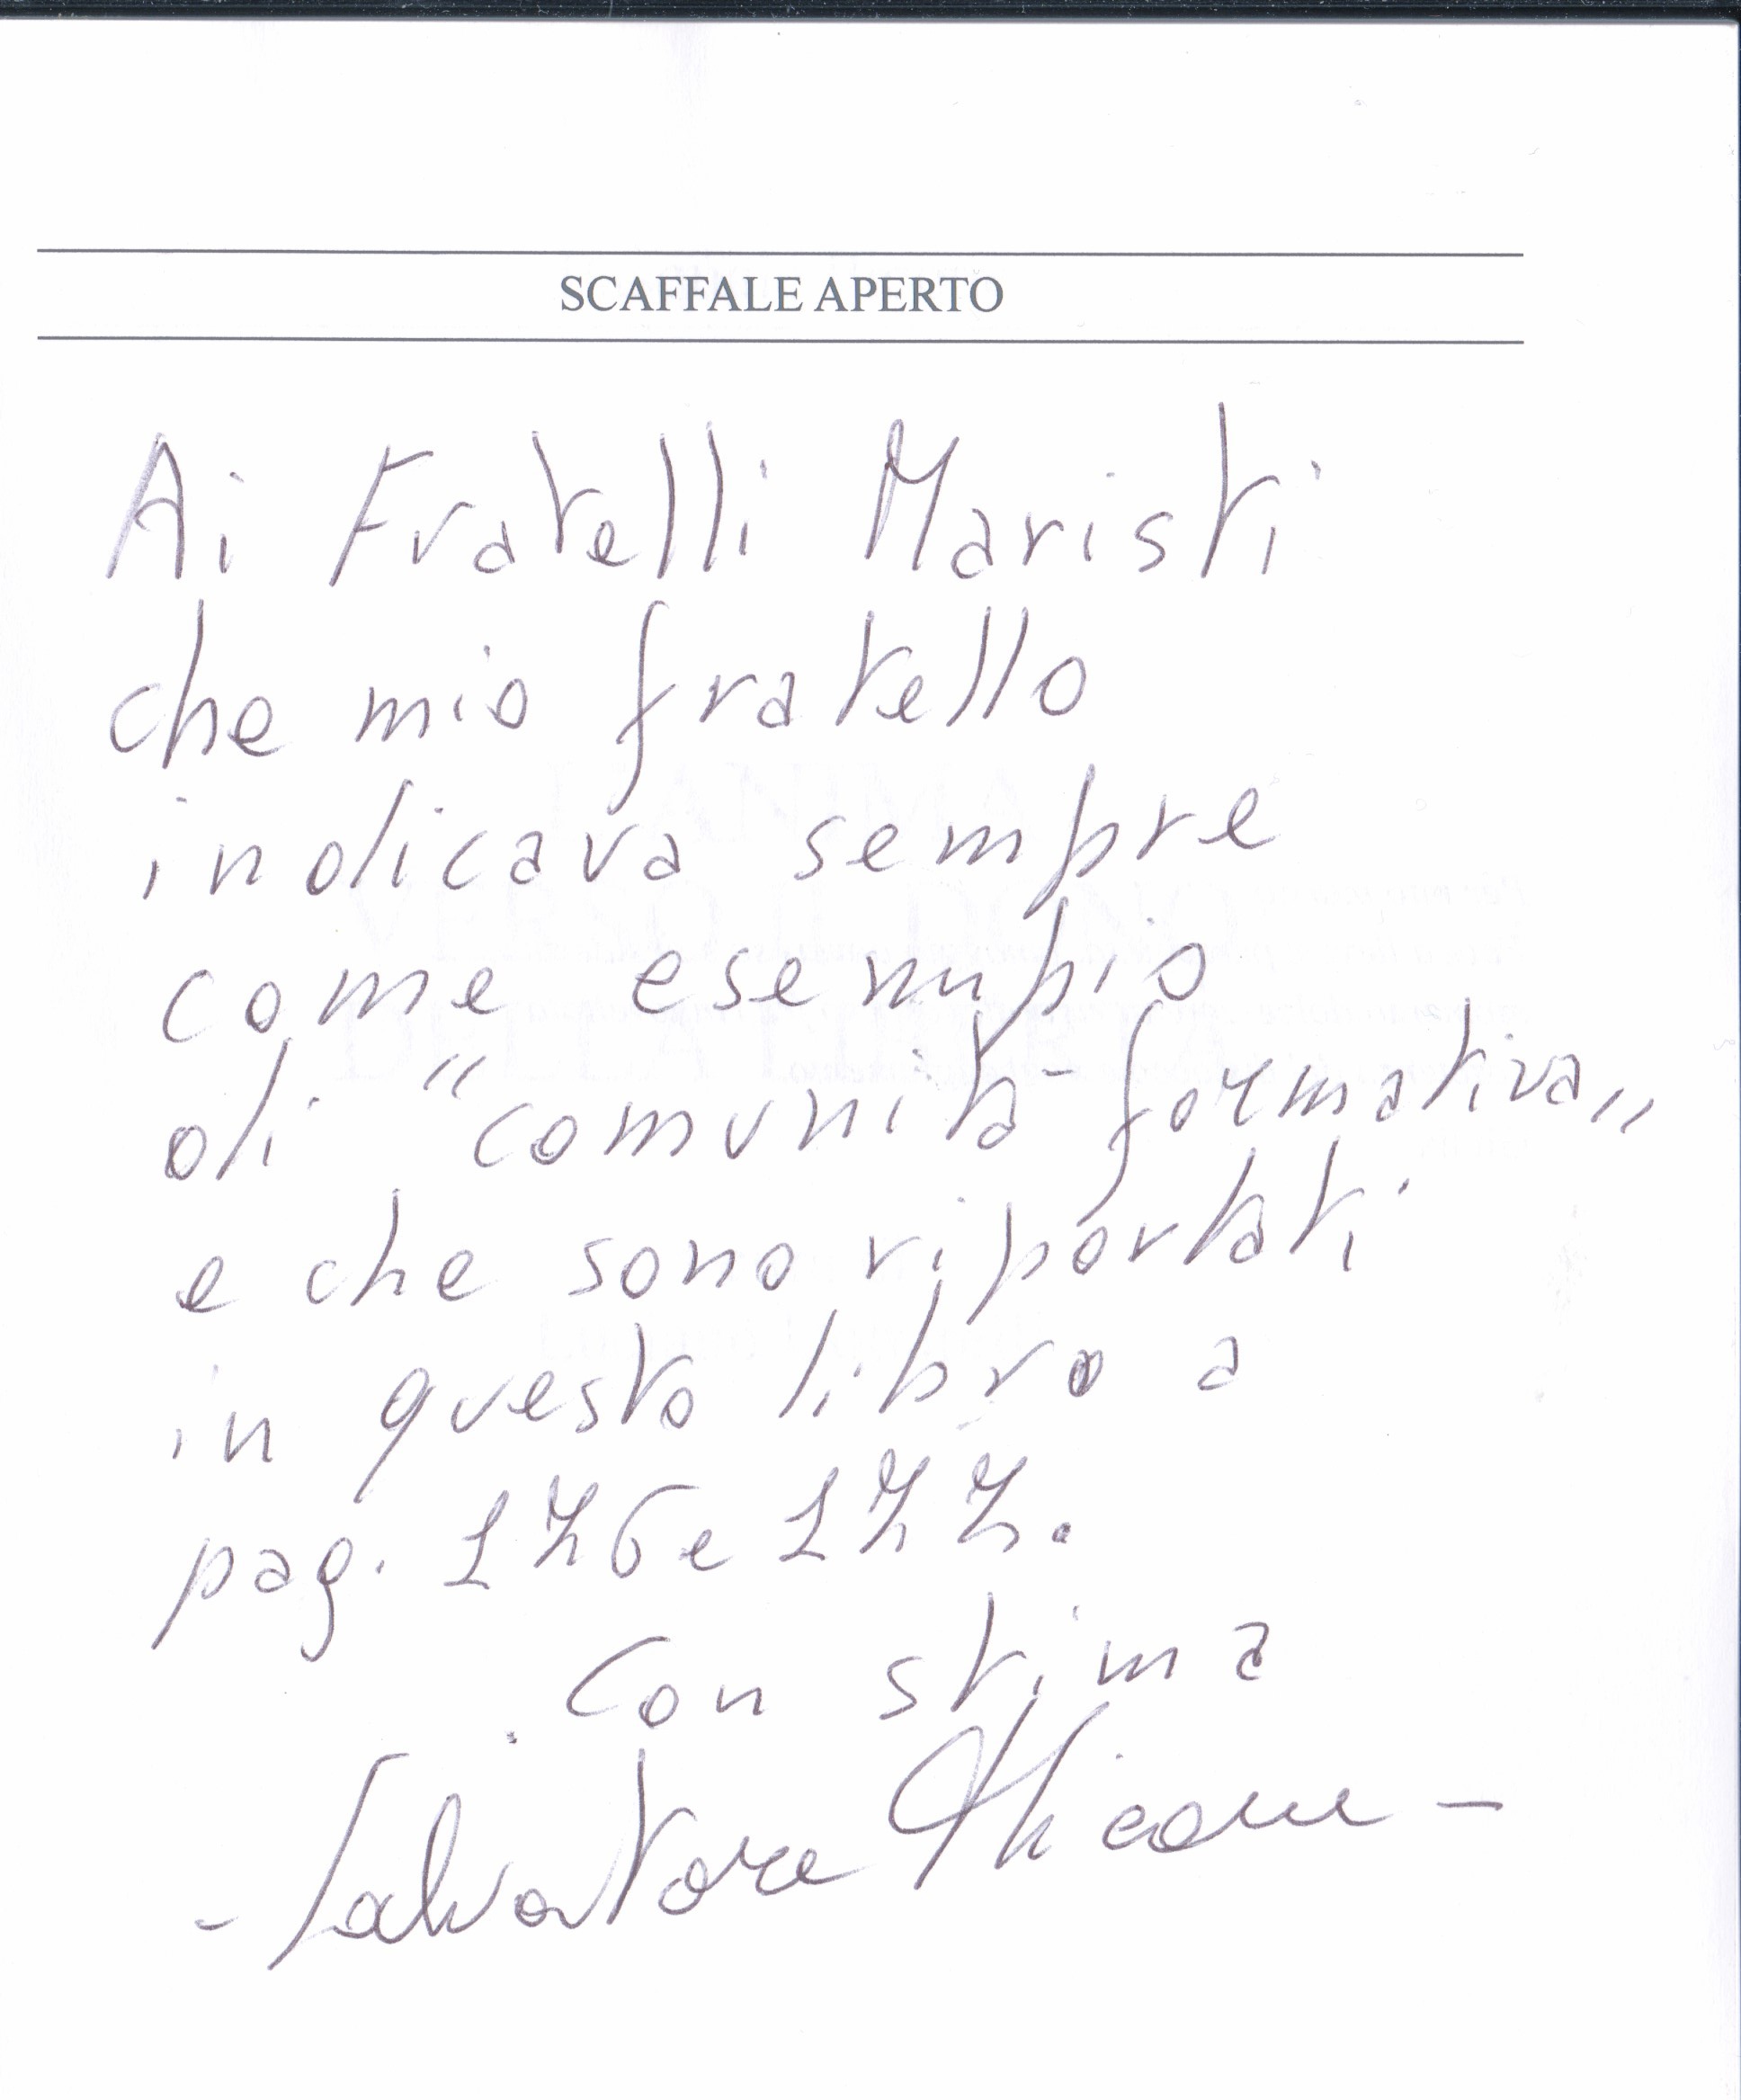 SCAFFALE APERTO
Ai Fratelli Maristi
che mio fratello
indicava sempre
come esempio
di "comunità formativa"
e che sono riportati
in questo libro a
pag. 176 e 177.
Con stima
- Salvatore -